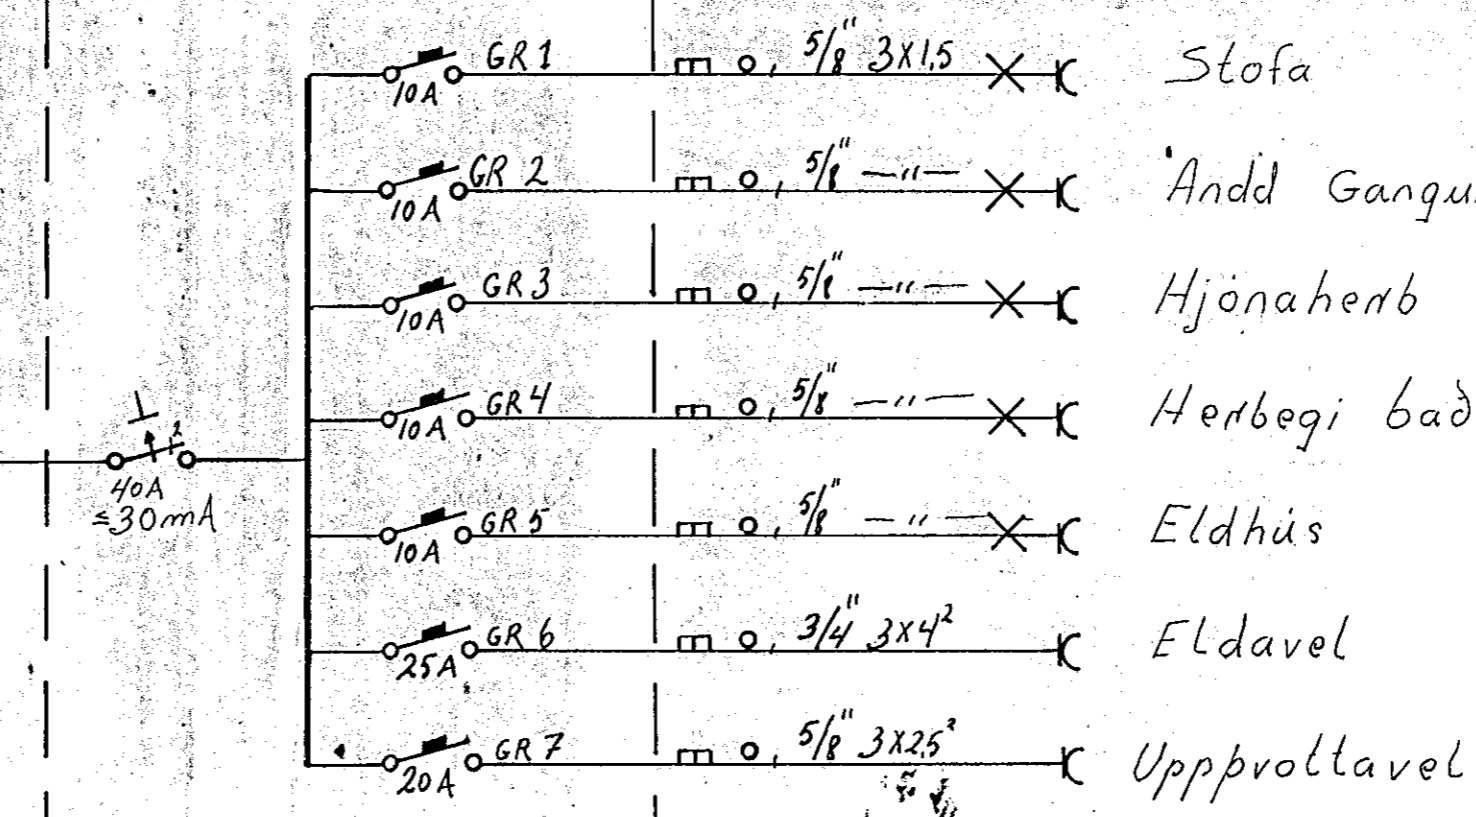 GR 1 5/8" 3X1,5 Stofa
10A
GR 2 5/8" —"— Andd Gangu
10A
GR 3 5/8" —"— Hjónaherb
10A
GR 4 5/8" —"— Herbegi bað
10A
40A
≤30mA
GR 5 5/8" —"— Eldhús
10A
GR 6 3/4" 3X4² Eldavel
25A
GR 7 5/8" 3X2,5² Uppþvottavel
20A